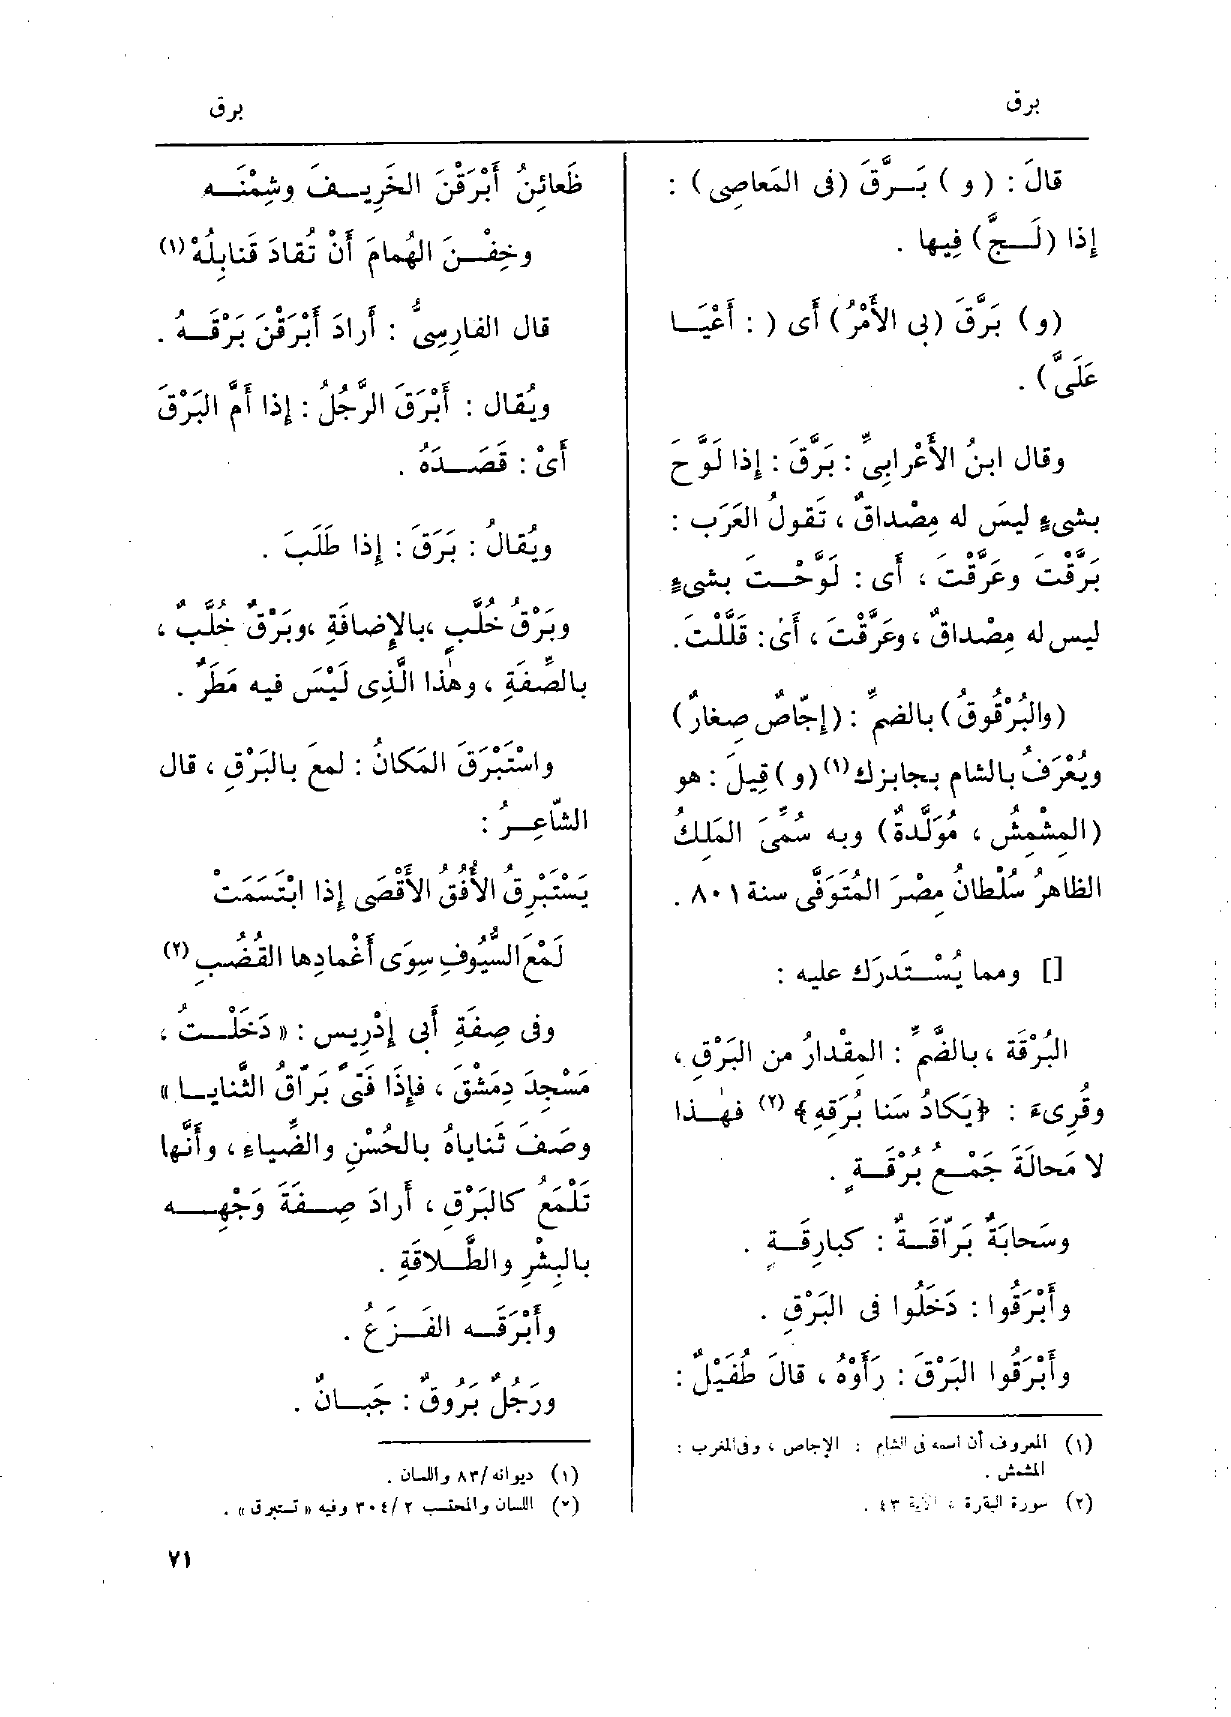 برق
برق
قالَ : ( و ) بَــرَّقَ (فى المَعاصِى) :
إذا (لَــجَّ) فِيها .
(و) بَرَّقَ (فى الأَمْرُ) أى ( : أَعْيَــا
عَلَىَّ) .
وقال ابنُ الأَعْرابِىِّ : بَرَّقَ : إذا لَوَّحَ
بشىءٍ ليسَ له مِصْداقٌ ، تَقولُ العَرَب :
بَرَّقْتَ وعَرَّقْتَ ، أَى : لَوَّحْــتَ بشىءٍ
ليس له مِصْداقٌ ، وعَرَّقْتَ ، أَىْ : قَلَّلْتَ .
(والبُرْقُوقُ) بالضمِّ : (إجّاصٌ صِغارٌ)
ويُعْرَفُ بالشام بجابزك(١) (و) قِيلَ : هو
(المِشْمِشُ ، مُوَلَّدةٌ) وبه سُمِّىَ المَلِكُ
الظاهرُ سُلْطانُ مِصْرَ المُتَوَفَّى سنة ٨٠١ .
[] ومما يُسْــتَدرَك عليه :
البُرْقَة ، بالضَّمِّ : المِقْدارُ من البَرْقِ ،
وقُرِىءَ : ﴿يَكادُ سَنا بُرَقِهِ﴾ (٢) فهٰـذا
لا مَحالَةَ جَمْــعُ بُرْقَــةٍ .
وسَحابَةٌ بَرّاقَــةٌ : كبارِقَــةٍ .
وأَبْرَقُوا : دَخَلُوا فى البَرْقِ .
وأَبْرَقُوا البَرْقَ : رَأَوْهُ ، قالَ طُفَيْلٌ :
(١) المعروف أن اسمه فى الشام : الإجاص ، وفى المغرب :
المشمش .
(٢) سورة البقرة ، الآية ٤٣ .
ظَعائِنُ أَبْرَقْنَ الخَرِيــفَ وشِمْنَــه
وخِفْــنَ الهُمامَ أَنْ تُقادَ قَنابِلُهْ (١)
قال الفارِسِىُّ : أَرادَ أَبْرَقْنَ بَرْقَــهُ .
ويُقال : أَبْرَقَ الرَّجُلُ : إذا أَمَّ البَرْقَ
أَىْ : قَصَــدَهُ .
ويُقالُ : بَرَقَ : إذا طَلَبَ .
وبَرْقُ خُلَّبٍ ، بالإِضافَةِ ، وبَرْقٌ خُلَّبٌ ،
بالصِّفَةِ ، وهٰذا الَّذِى لَيْسَ فيه مَطَرٌ .
واسْتَبْرَقَ المَكانُ : لمعَ بالبَرْقِ ، قال
الشّاعِــرُ :
يَسْتَبْرِقُ الأُفُقُ الأَقْصَى إذا ابْتَسَمَتْ
لَمْعَ السُّيُوفِ سِوَى أَغْمادِها القُضُبِ (٢)
وفى صِفَةِ أَبى إدْرِيس : « دَخَلْــتُ ،
مَسْجِدَ دِمَشْقَ ، فإِذَا فَتًى بَرّاقُ الثَّنايــا »
وصَفَ ثَناياهُ بالحُسْنِ والضِّياءِ ، وأَنَّها
تَلْمَعُ كالبَرْقِ ، أَرادَ صِــفَةَ وَجْهِــه
بالبِشْرِ والطَّــلاقَةِ .
وأَبْرَقَــه الفَــزَعُ .
ورَجُلٌ بَرُوقٌ : جَبــانٌ .
(١) ديوانه /٨٣ واللسان .
(٢) اللسان والمحتسب ٢ /٣٠٤ وفيه « تستبرق » .
٧١